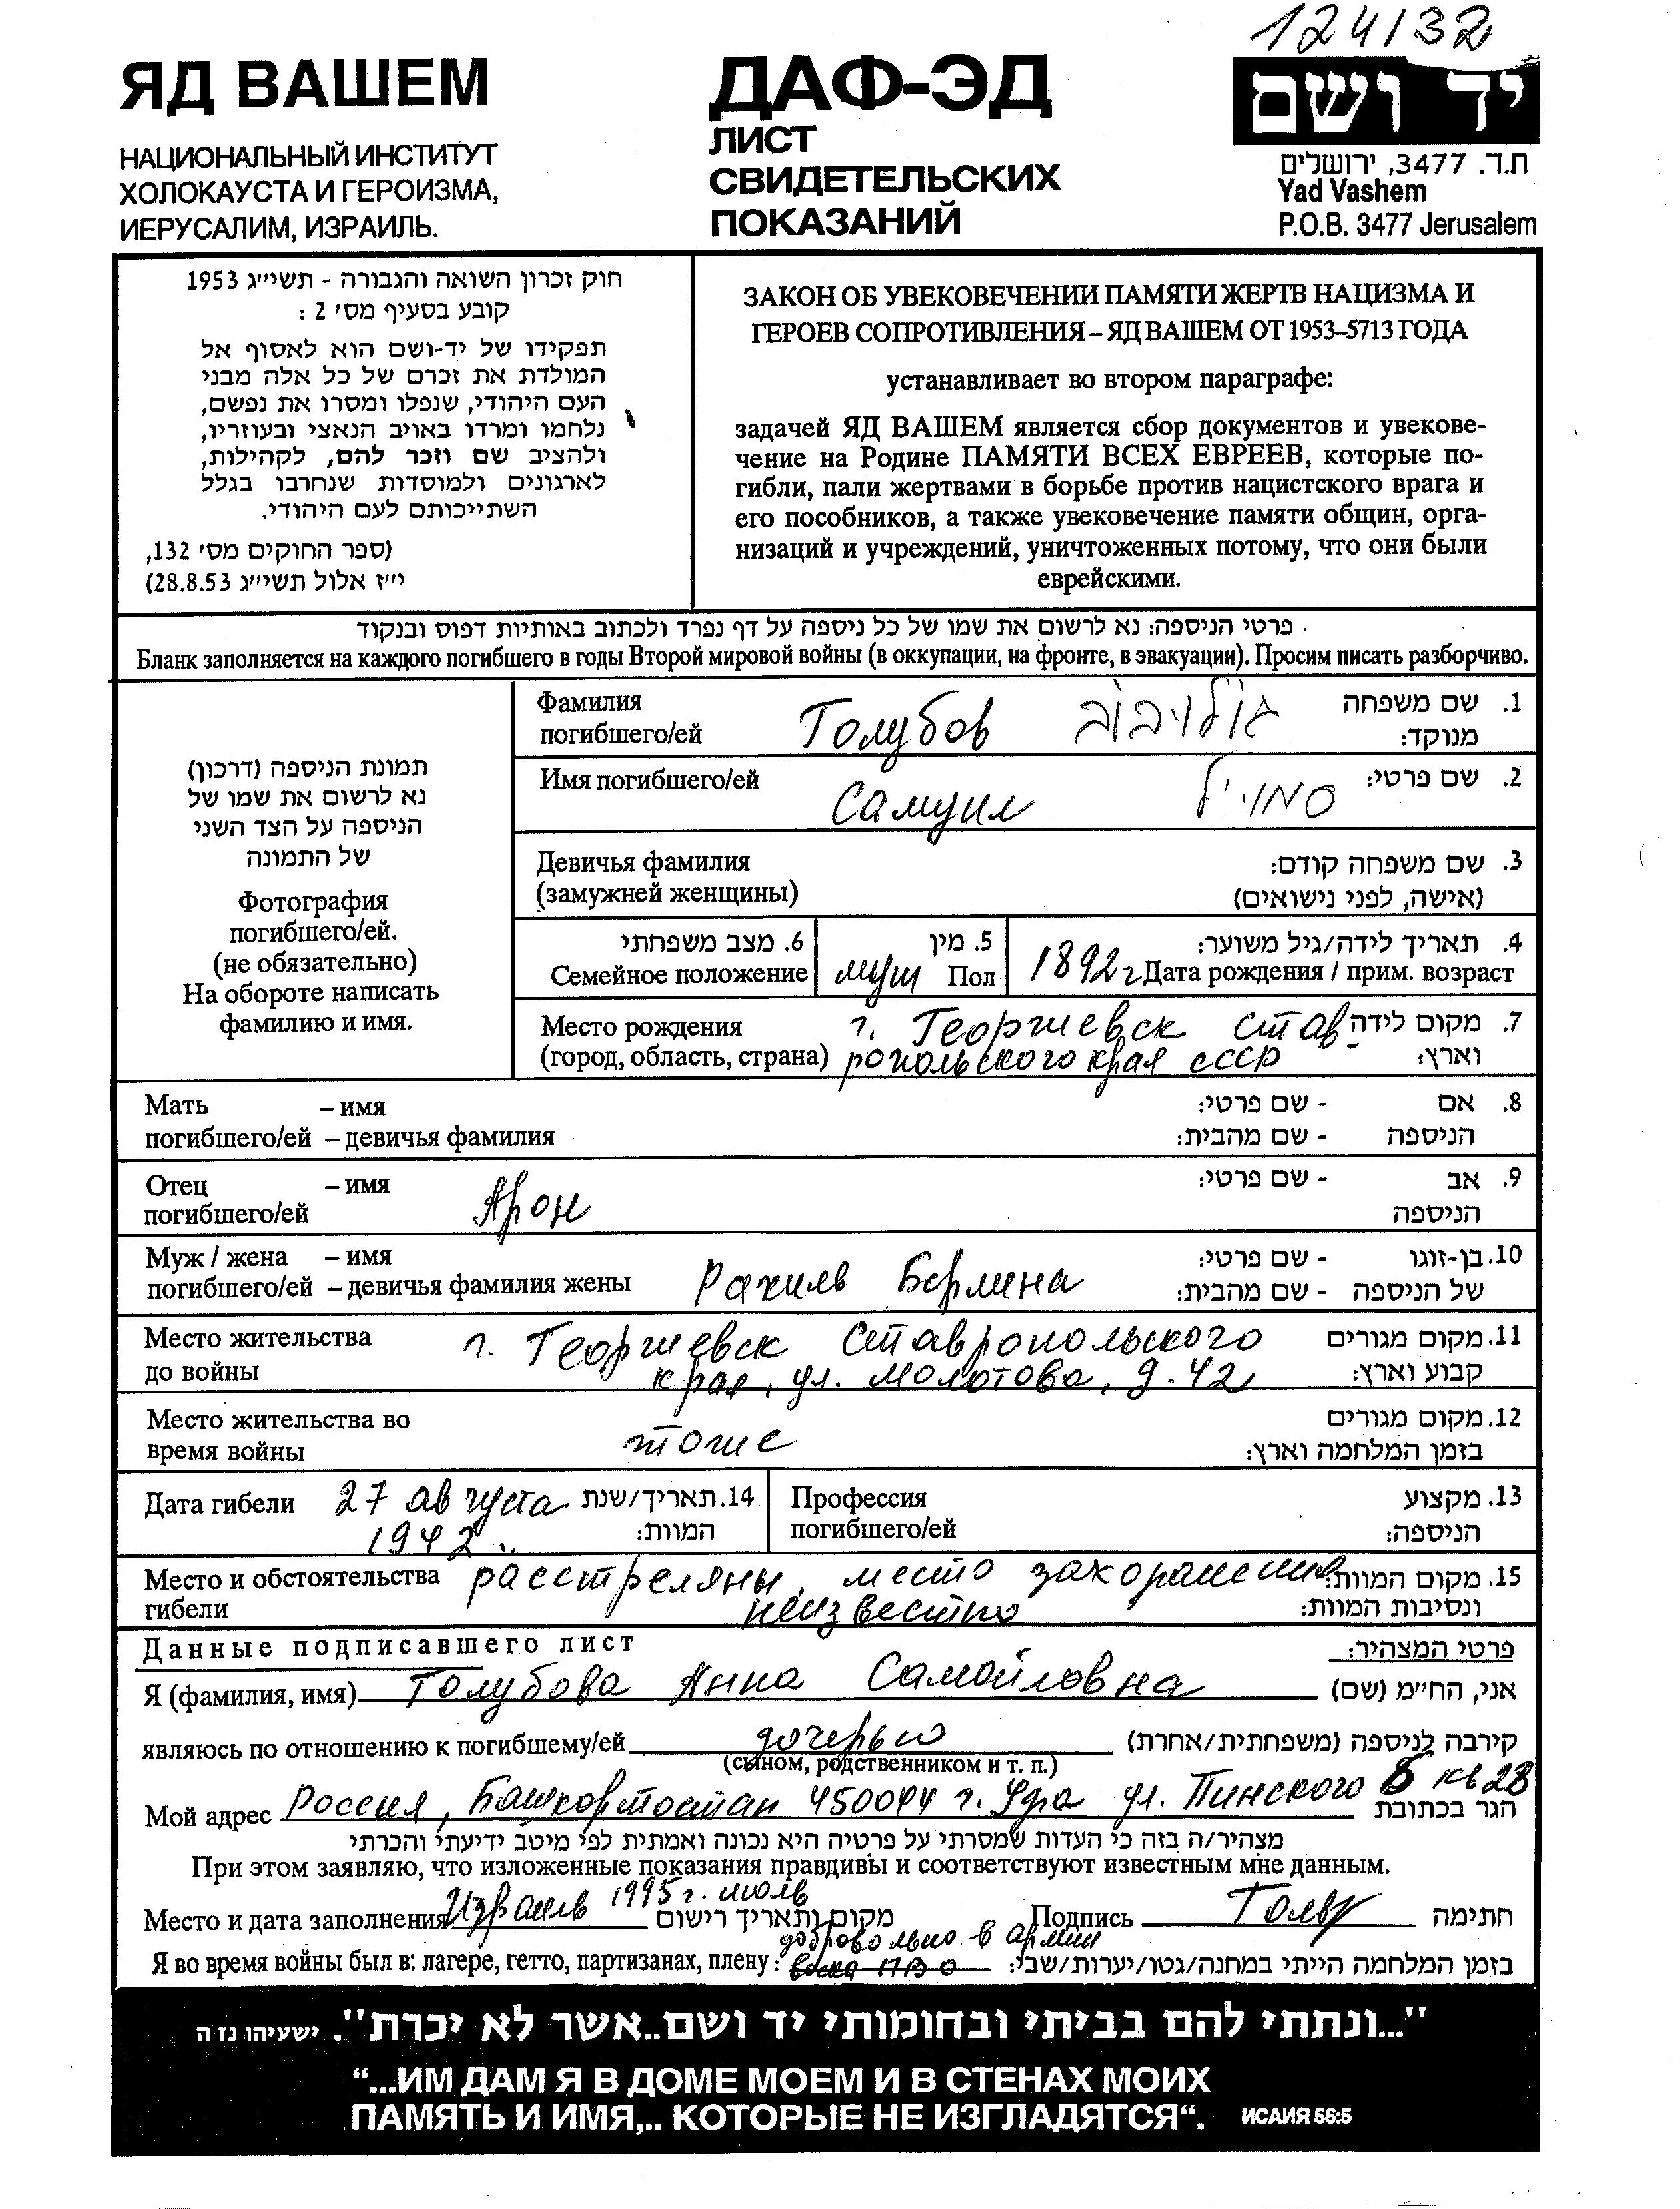 124132
ЯД ВАШЕМ
НАЦИОНАЛЬНЫЙ ИНСТИТУТ
ХОЛОКАУСТА И ГЕРОИЗМА,
ИЕРУСАЛИМ, ИЗРАИЛЬ.
ДАФ-ЭД
ЛИСТ
СВИДЕТЕЛЬСКИХ
ПОКАЗАНИЙ
יד ושם
ת.ד. 3477, ירושלים
Yad Vashem
P.O.B. 3477 Jerusalem
חוק זכרון השואה והגבורה - תשי״ג 1953
קובע בסעיף מס׳ 2 :
תפקידו של יד-ושם הוא לאסוף אל
המולדת את זכרם של כל אלה מבני
העם היהודי, שנפלו ומסרו את נפשם,
נלחמו ומרדו באויב הנאצי ובעוזריו,
ולהציב שם וזכר להם, לקהילות,
לארגונים ולמוסדות שנחרבו בגלל
השתייכותם לעם היהודי.
(ספר החוקים מס׳ 132,
י״ז אלול תשי״ג 28.8.53)
ЗАКОН ОБ УВЕКОВЕЧЕНИИ ПАМЯТИ ЖЕРТВ НАЦИЗМА И
ГЕРОЕВ СОПРОТИВЛЕНИЯ – ЯД ВАШЕМ ОТ 1953–5713 ГОДА
устанавливает во втором параграфе:
задачей ЯД ВАШЕМ является сбор документов и увекове-
чение на Родине ПАМЯТИ ВСЕХ ЕВРЕЕВ, которые по-
гибли, пали жертвами в борьбе против нацистского врага и
его пособников, а также увековечение памяти общин, орга-
низаций и учреждений, уничтоженных потому, что они были
еврейскими.
פרטי הניספה: נא לרשום את שמו של כל ניספה על דף נפרד ולכתוב באותיות דפוס ובנקוד
Бланк заполняется на каждого погибшего в годы Второй мировой войны (в оккупации, на фронте, в эвакуации). Просим писать разборчиво.
תמונת הניספה (דרכון)
נא לרשום את שמו של
הניספה על הצד השני
של התמונה
Фотография
погибшего/ей.
(не обязательно)
На обороте написать
фамилию и имя.
Фамилия
погибшего/ей Голубов גולובוב 1. שם משפחה
מנוקד:
Имя погибшего/ей Самуил סמויל 2. שם פרטי:
Девичья фамилия 3. שם משפחה קודם:
(замужней женщины) (אישה, לפני נישואים)
6. מצב משפחתי 5. מין 4. תאריך לידה/גיל משוער:
Семейное положение муж Пол 1892 г Дата рождения / прим. возраст
Место рождения г. Георгиевск Став- 7. מקום לידה
(город, область, страна) ропольского края СССР וארץ:
Мать – имя 8. אם - שם פרטי:
погибшего/ей – девичья фамилия הניספה - שם מהבית:
Отец – имя 9. אב - שם פרטי:
погибшего/ей Арон הניספה
Муж / жена – имя 10. בן-זוגו - שם פרטי:
погибшего/ей – девичья фамилия жены Рахиль Берлина של הניספה - שם מהבית:
Место жительства г. Георгиевск Ставропольского 11. מקום מגורים
до войны края, ул. Молотова, д. 42 קבוע וארץ:
Место жительства во 12. מקום מגורים
время войны тоже בזמן המלחמה וארץ:
Дата гибели 27 августа 14. תאריך/שנת
1942 המוות:
Профессия 13. מקצוע
погибшего/ей הניספה:
Место и обстоятельства расстреляны, место захоранения 15. מקום המוות:
гибели неизвестно ונסיבות המוות:
Данные подписавшего лист פרטי המצהיר:
Я (фамилия, имя) Голубова Анна Самойловна אני, החי״מ (שם)
являюсь по отношению к погибшему/ей дочерью קירבה לניספה (משפחתית/אחרת)
(сыном, родственником и т. п.)
Мой адрес Россия, Башкортостан 450044 г. Уфа ул. Пинского 6 кв 28 הגר בכתובת
מצהיר/ה בזה כי העדות שמסרתי על פרטיה היא נכונה ואמתית לפי מיטב ידיעתי והכרתי
При этом заявляю, что изложенные показания правдивы и соответствуют известным мне данным.
Место и дата заполнения Израиль 1995 г. июль מקום ותאריך רישום Подпись חתימה
добровольно в армии
Я во время войны был в: лагере, гетто, партизанах, плену: בזמן המלחמה הייתי במחנה/גטו/יערות/שבי:
"...ונתתי להם בביתי ובחומותי יד ושם..אשר לא יכרת". ישעיהו נז ה
“...ИМ ДАМ Я В ДОМЕ МОЕМ И В СТЕНАХ МОИХ
ПАМЯТЬ И ИМЯ,.. КОТОРЫЕ НЕ ИЗГЛАДЯТСЯ“. ИСАИЯ 56:5